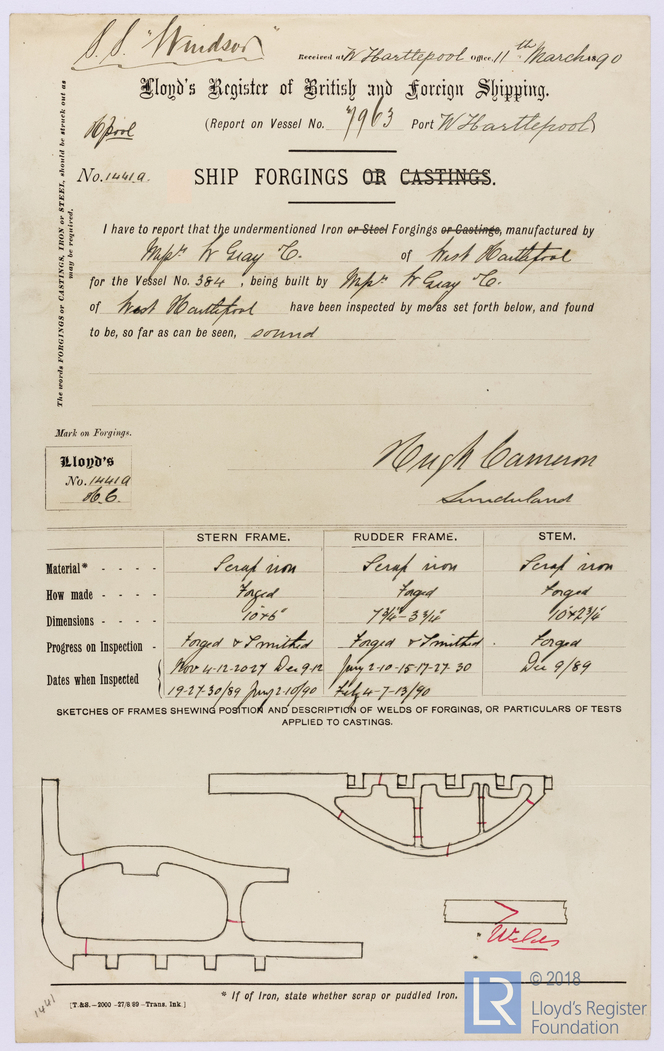 S.S. "Windsor"
Received at W Hartlepool Office, 11th March 1890
Lloyd's Register of British and Foreign Shipping.
(Report on Vessel No. 7963 Port W Hartlepool)
H,pool
No. 1441a.
SHIP FORGINGS OR CASTINGS.
The words FORGINGS or CASTINGS, IRON or STEEL, should be struck out as
may be required.
I have to report that the undermentioned Iron or Steel Forgings or Castings, manufactured by
Messrs W Gray & Co. of West Hartlepool
for the Vessel No. 384, being built by Messrs W Gray & Co.
of West Hartlepool have been inspected by me as set forth below, and found
to be, so far as can be seen, sound
Mark on Forgings.
Lloyd's
No. 1441a
H.C.
Hugh Cameron
Sunderland
STERN FRAME. RUDDER FRAME. STEM.
Material* - - - - Scrap iron Scrap iron Scrap iron
How made - - - - Forged Forged Forged
Dimensions - - - - 10"x6" 7¾"-3¾" 10"x2¾"
Progress on Inspection - Forged & Smithed Forged & Smithed - Forged
Dates when Inspected Nov 4-12-20-27 Dec 9-12 Jany 2-10-15-17-27-30 Dec 9/89
19-27-30/89 Jany 2-10/90 Feby 4-7-13/90
SKETCHES OF FRAMES SHEWING POSITION AND DESCRIPTION OF WELDS OF FORGINGS, OR PARTICULARS OF TESTS
APPLIED TO CASTINGS.
Welds
* If of Iron, state whether scrap or puddled Iron.
[T.&S.—2000—27/8/89—Trans. Ink.]
1441
LR
© 2018
Lloyd's Register
Foundation